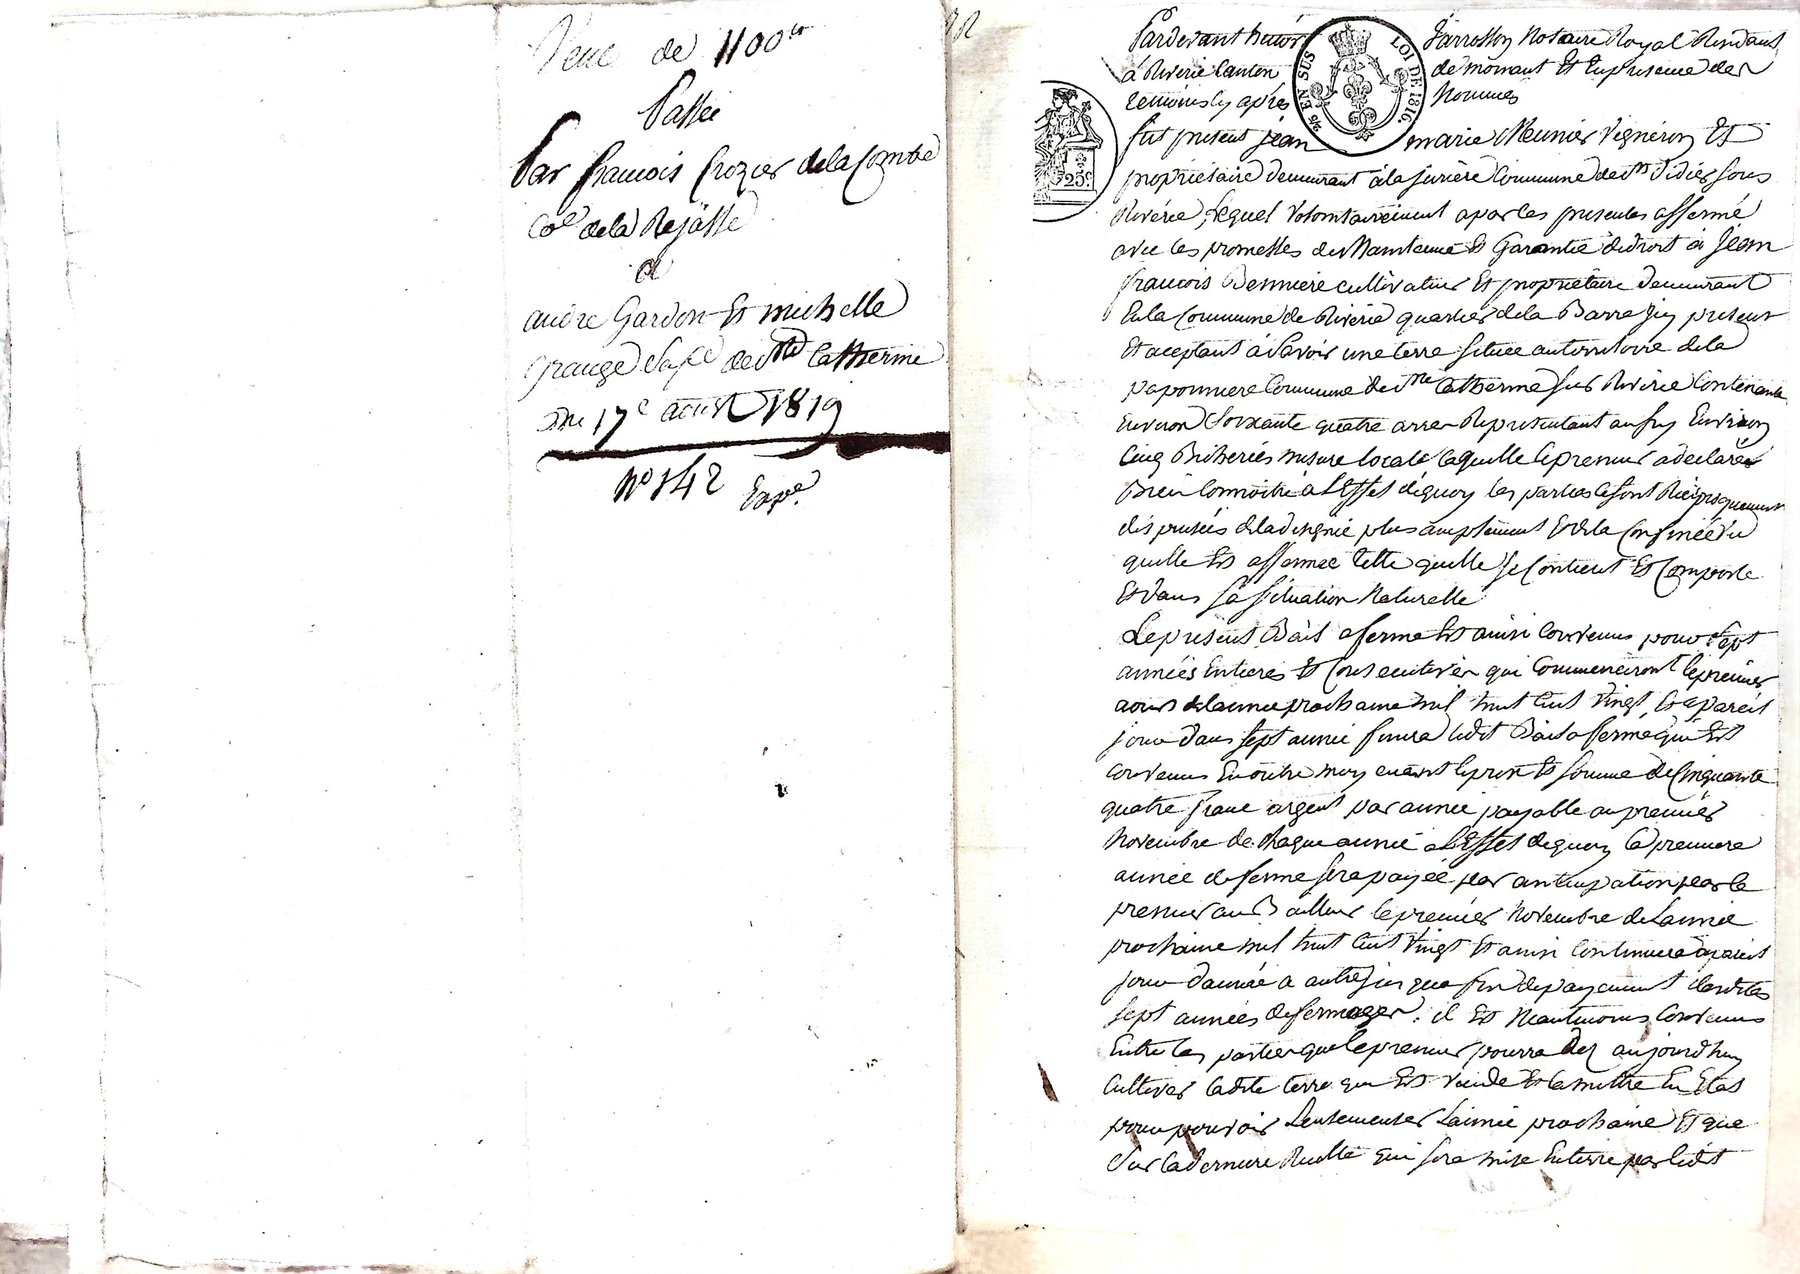 Vente de 1100 fr
Passée
Par francois Crozier de la Combe
Cne de la Rajasse
a
andre Gardon Et michelle
grange de Ste Catherine
Du 17e aoust 1819
No 142 Expé.
Pardevant hitor Jarrosson Notaire Royal Residant
á Riverie Canton de mornant Et En presence des
temoins cy apres Nommes
2/6 EN SUS LOI DE 1816.
25c
fut present jean marie Meunier Vigneron Et
propriétaire demeurant á la ferrière Commune de St Didier sous
Rivérie, lequel Volontairement a par les presentes affermé
avec les promesses de Maintenue Et Garantie de droit á Jean
francois cultivateur Et proprietaire demeurant
En la Commune de Riverié quartier de la Barre Jcy present
Et aceptant á Savoir une terre Située au territoire de la
paponniere Commune de Ste Catherine sur Riverie Contenante
Environ Soixante quatre arres Representant au fur Environ
Cinq Bicherées mesure locale laquelle le preneur a declaré
Bien Connoitre á L'Effet de quoy les parties se sont Réciproquement
dispensés de la désigné plus amplement Et de la Confinée
quelle Est affermée telle quelle se Contient Et Comporte
Et dans sa situation Naturelle
Le present Bail a ferme Est ainsi Convenus pour Sept
années Entieres Et Consecutives qui Commenceront le premier
aoust de lannée prochaine mil huit Cent Vingt, Et a pareil
jour dans sept année finira ledit Bail a ferme qui Est
Convenus En outre moyenant le prix Et somme de Cinquante
quatre franc argent par année payable au premier
Novembre de Chaque année a L'Effet de quoy la premiere
année de ferme sera payée par anticipation par le
preneur au Bailleur le premier Novembre de Lannée
prochaine mil huit Cent Vingt Et ainsi Continuera a pareil
jour d'année a autre jus qua fin de payement desdites
sept années de fermages. il Est Neantmoins Convenus
Entre les parties que le preneur pourra dez aujourdhuy
Cultiver ladite terre qui Est Vuide Et la mettre En Etat
pour pouvoir Lensemencer Lannée prochaine Et que
Sur la derniere Recolte qui sera mise En terre par ledit